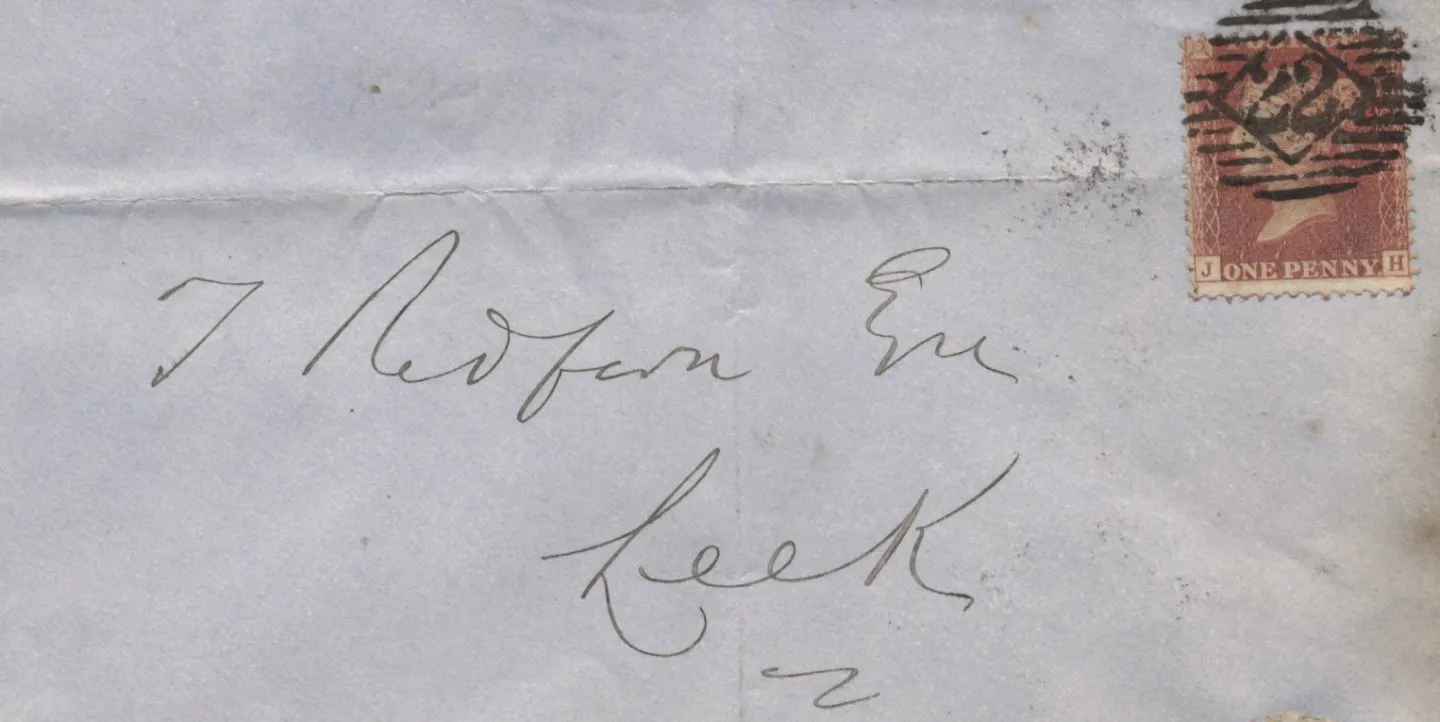 22
J ONE PENNY H
T Redfern Esq
Leek